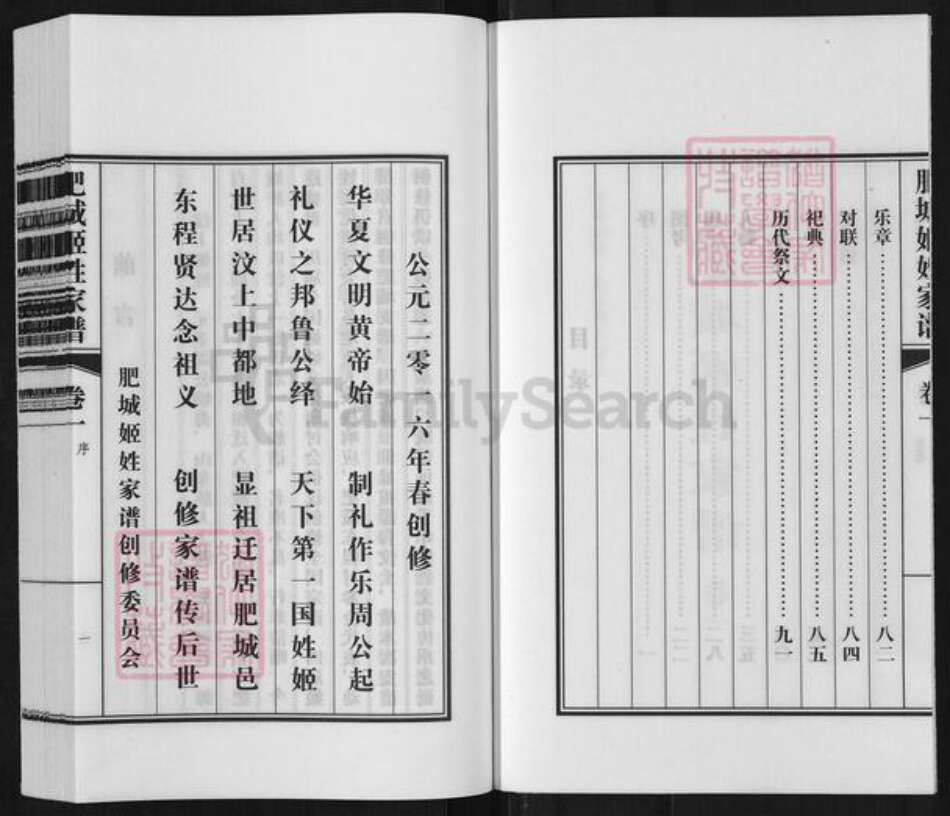 肥城姬姓家谱
卷一
乐章……八二
对联……八四
祀典……八五
历代祭文……九一
公元二零一六年春创修
华夏文明黄帝始 制礼作乐周公起
礼仪之邦鲁公绎 天下第一国姓姬
世居汶上中都地 显祖迁居肥城邑
东程贤达念祖义 创修家谱传后世
肥城姬姓家谱创修委员会
肥城姬姓家谱
卷一
序
一
FamilySearch